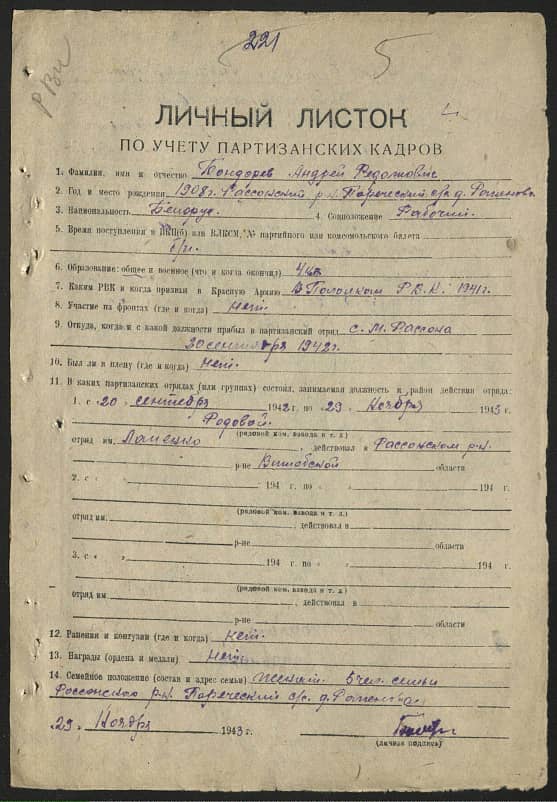 221
5
РВи
ЛИЧНЫЙ ЛИСТОК
ПО УЧЕТУ ПАРТИЗАНСКИХ КАДРОВ
1. Фамилия, имя и отчество Бондарев Андрей
2. Год и место рождения 1908г. Рассонский р.н. Пареческий с/с д.
3. Национальность Белорус. 4. Соцположение Рабочий.
5. Время поступления в ВКП(б) или ВЛКСМ, № партийного или комсомольского билета
б/п.
6. Образование: общее и военное (что и когда окончил) 4 кл
7. Каким РВК и когда призван в Красную Армию В Полоцком Р.В.К. 1941г.
8. Участие на фронтах (где и когда) нет.
9. Откуда, когда и с какой должности прибыл в партизанский отряд с. М.
сентября 1942г.
10. Был ли в плену (где и когда) нет.
11. В каких партизанских отрядах (или группах) состоял, занимаемая должность и район действия отряда:
1. с 20 сентября 1942 г. по 29 Ноября 1943 г.
Родовой.
(рядовой ком. взвода и т. д.)
отряд им. , действовал в Рассонском р.н.
р-не Витебской области
2. с " " 194 г. по " " 194 г.
(рядовой ком. взвода и т. д.)
отряд им. , действовал в
р-не области
3. с " " 194 г. по " " 194 г.
(рядовой ком. взвода и т. д.)
отряд им , действовал в
р-не области
12. Ранения и контузии (где и когда) нет.
13. Награды (ордена и медали) нет.
14. Семейное положение (состав и адрес семьи) Женат. 5 чел. семьи
Россонского р.н. Пареческий с/с. д.
29. Ноября 1943 г.
(личная подпись)